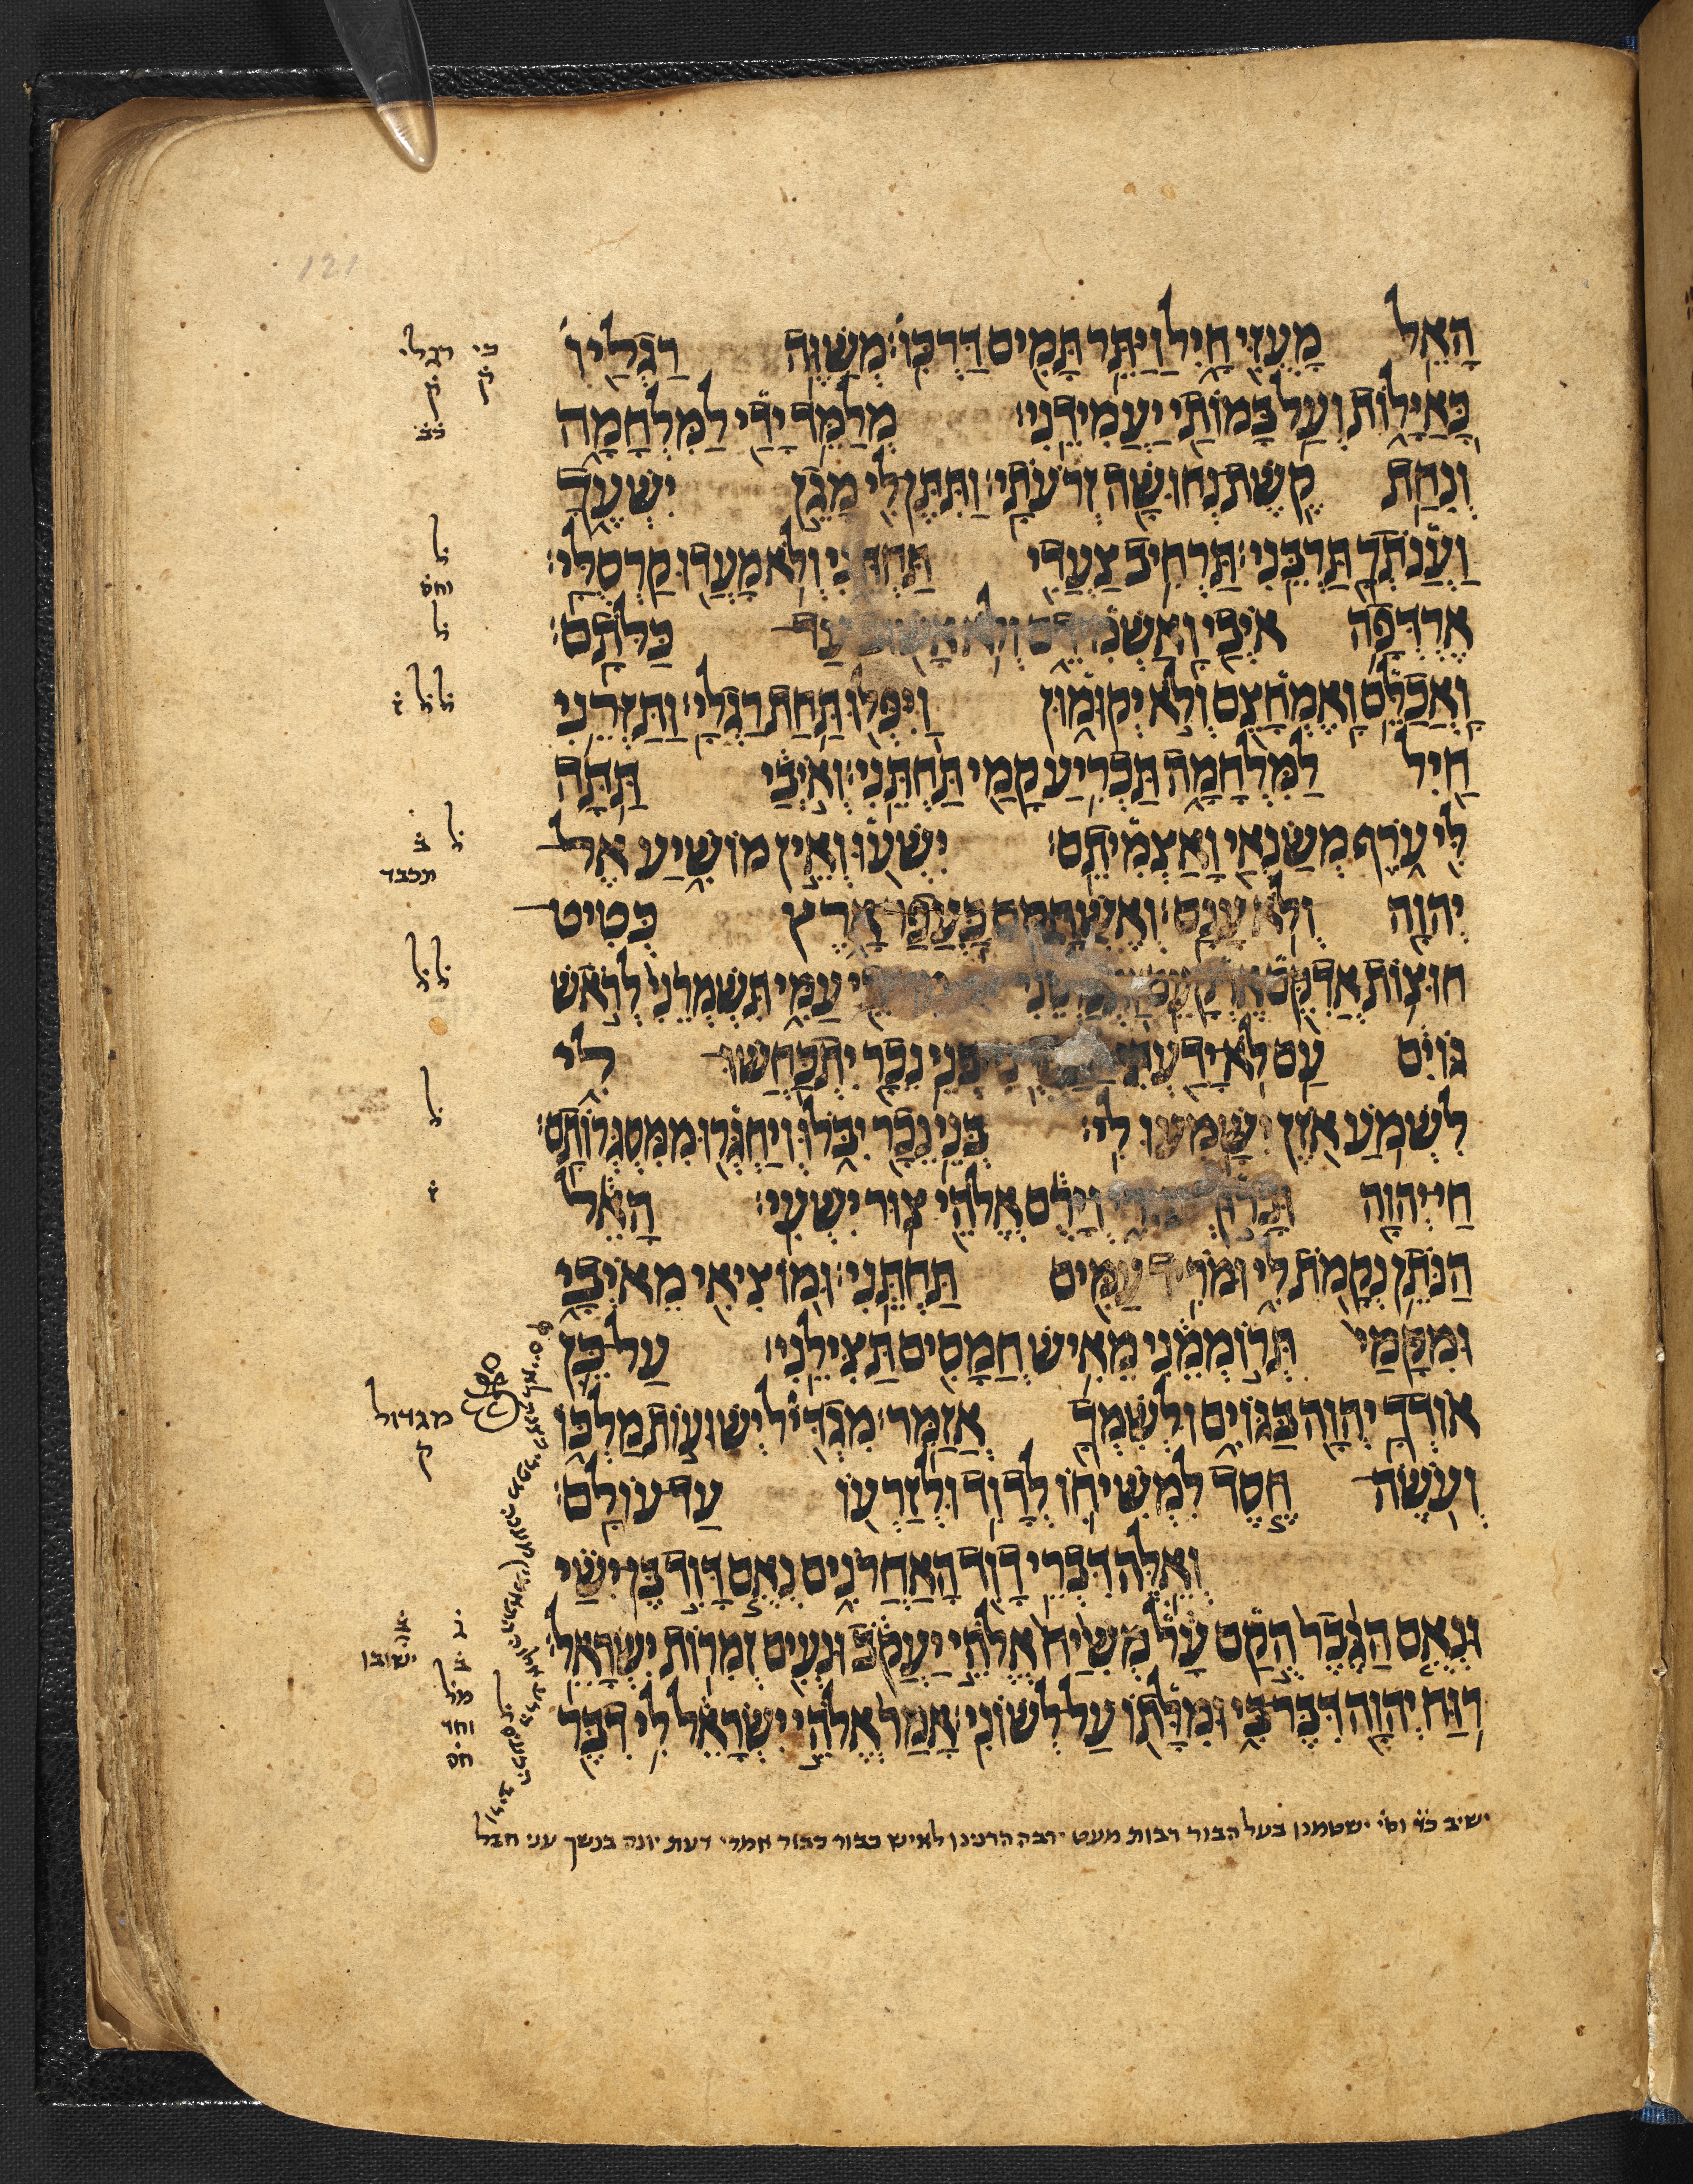 הָאֵל מָעוּזִּי חָיִל וַיַּתֵּר תָּמִים דַּרְכּוֹ׃ מְשַׁוֶּה רַגְלָיו
כָּאַיָּלוֹת וְעַל בָּמוֹתַי יַעֲמִידֵנִי׃ מְלַמֵּד יָדַי לַמִּלְחָמָה
וְנִחַת קֶשֶׁת נְחוּשָׁה זְרֹעֹתָי׃ וַתִּתֶּן לִי מָגֵן יִשְׁעֶךָ
וַעֲנֹתְךָ תַּרְבֵּנִי׃ תַּרְחִיב צַעֲדִי תַּחְתֵּנִי וְלֹא מָעֲדוּ קַרְסֻלָּי׃
אֶרְדְּפָה אֹיְבַי וָאַשְׁמִידֵם וְלֹא אָשׁוּב עַד כַּלּוֹתָם׃
וָאֲכַלֵּם וָאֶמְחָצֵם וְלֹא יְקוּמוּן וַיִּפְּלוּ תַּחַת רַגְלָי׃ וַתַּזְרֵנִי
חַיִל לַמִּלְחָמָה תַּכְרִיעַ קָמַי תַּחְתֵּנִי׃ וְאֹיְבַי תַּתָּה
לִּי עֹרֶף מְשַׂנְאַי וָאַצְמִיתֵם׃ יִשְׁעוּ וְאֵין מוֹשִׁיעַ אֶל
יְהוָה וְלֹא עָנָם׃ וְאֶשְׁחָקֵם כַּעֲפַר אָרֶץ כְּטִיט
חוּצוֹת אֲדִקֵּם עַמִּי תִּשְׁמְרֵנִי לְרֹאשׁ
גּוֹיִם עַם לֹא יָדַעְתִּי בְּנֵי נֵכָר יִתְכַּחֲשׁוּ לִי
לִשְׁמוֹעַ אֹזֶן יִשָּׁמְעוּ לִי׃ בְּנֵי נֵכָר יִבֹּלוּ וְיַחְגְּרוּ מִמִּסְגְּרוֹתָם׃
חַי יְהוָה וּבָרוּךְ וְיָרֻם אֱלֹהֵי צוּר יִשְׁעִי׃ הָאֵל
הַנֹּתֵן נְקָמֹת לִי וּמֹרִיד עַמִּים תַּחְתֵּנִי׃ וּמוֹצִיאִי מֵאֹיְבָי
וּמִקָּמַי תְּרוֹמְמֵנִי מֵאִישׁ חֲמָסִים תַּצִּילֵנִי׃ עַל כֵּן
אוֹדְךָ יְהוָה בַּגּוֹיִם וּלְשִׁמְךָ אֲזַמֵּר׃ מִגְדִּיל יְשׁוּעוֹת מַלְכּוֹ
וְעֹשֶׂה חֶסֶד לִמְשִׁיחוֹ לְדָוִד וּלְזַרְעוֹ עַד עוֹלָם׃
וְאֵלֶּה דִּבְרֵי דָוִד הָאַחֲרֹנִים נְאֻם דָּוִד בֶּן יִשַׁי
וּנְאֻם הַגֶּבֶר הֻקַם עָל מְשִׁיחַ אֱלֹהֵי יַעֲקֹב וּנְעִים זְמִרוֹת יִשְׂרָאֵל׃
רוּחַ יְהוָה דִּבֶּר בִּי וּמִלָּתוֹ עַל לְשׁוֹנִי׃ אָמַר אֱלֹהֵי יִשְׂרָאֵל לִי דִבֶּר
רגלי ק
מגדול
ק
ישובו
121